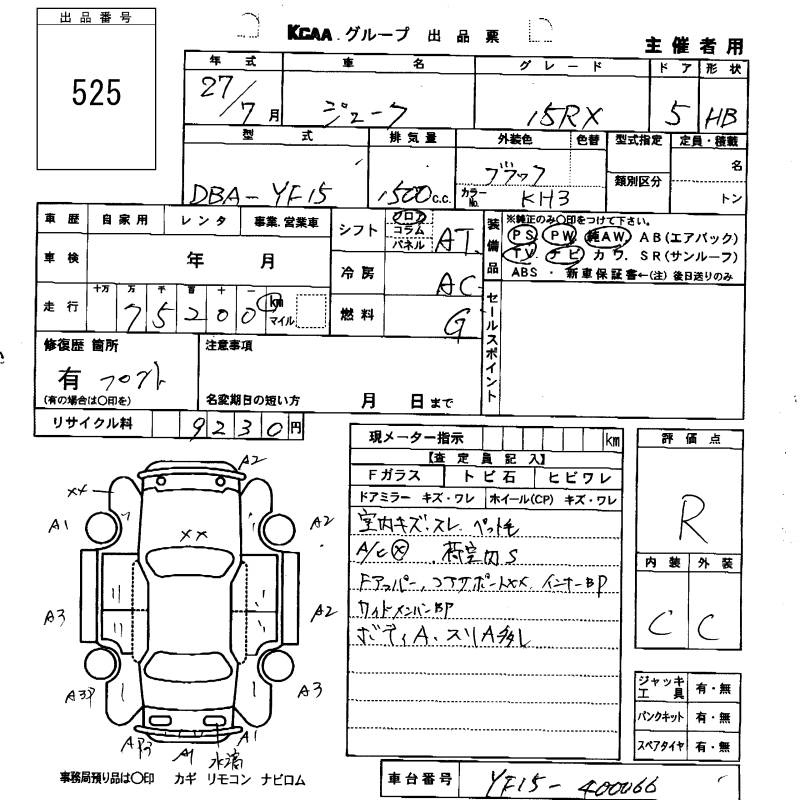 出品番号
525
KCAA グループ 出品票
主催者用
年式 車名 グレード ドア 形状
27/7月 ジューク 15RX 5 HB
型式 排気量 外装色 色替 型式指定 定員・積載
DBA-YF15 1500 c.c. ブラック 類別区分 名
カラーNo. KH3 トン
車歴 自家用 レンタ 事業.営業車
車検 年 月
走行 十万 万 千 百 十 一
75200 km マイル
シフト フロア コラム パネル AT
冷房 AC
燃料 G
装備品
※純正のみ○印をつけて下さい。
PS PW 純AW AB(エアバック)
TV ナビ カワ SR(サンルーフ)
ABS ・ 新車保証書←(注) 後日送りのみ
セールスポイント
修復歴 箇所
有 フロント
(有の場合は○印を)
注意事項
名変期日の短い方 月 日まで
リサイクル料 9230円
現メーター指示 km
【査定員記入】
Fガラス トビ石 ヒビワレ
ドアミラー キズ・ワレ ホイール(CP) キズ・ワレ
室内キズ.スレ ペット毛
A/C X
ドアッパー、コアサポートXX、インナーBP
サイドメンバーBP
ボディA、スリA多し
評価点
R
内装 外装
C C
ジャッキ工具 有・無
パンクキット 有・無
スペアタイヤ 有・無
A2
XX
A1 XX A2
A3 A2
A3P A3
AP3 A1 水滴 A1
事務局預り品は○印 カギ リモコン ナビロム
車台番号 YF15-400066